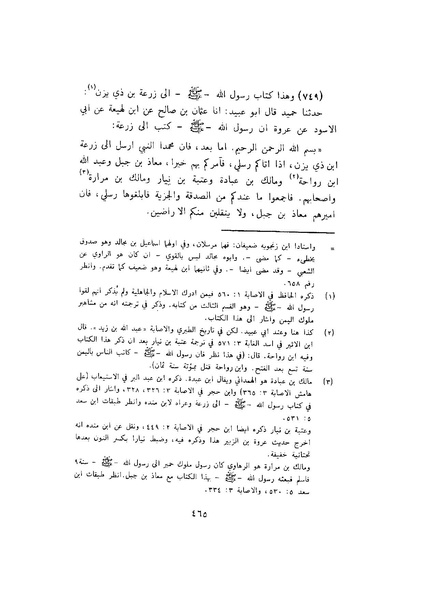 (٧٤٩) وهذا كتاب رسول الله - ﷺ - الى زرعة بن ذي يزن(١):
حدثنا حميد قال ابو عبيد: انا عثمان بن صالح عن ابن لهيعة عن ابي
الاسود عن عروة ان رسول الله - ﷺ - كتب الى زرعة:
«بسم الله الرحمن الرحيم. اما بعد، فان محمدا النبي ارسل الى زرعة
ابن ذي يزن، اذا اتاكم رسلي، فآمركم بهم خيرا، معاذ بن جبل وعبد الله
ابن رواحة(٢) ومالك بن عبادة وعتبة بن نيار ومالك بن مرارة(٣)
واصحابهم. فاجمعوا ما عندكم من الصدقة والجزية فابلغوها رسلي، فان
اميرهم معاذ بن جبل، ولا ينقلبن منكم الا راضين.
= واسنادا ابن زنجويه ضعيفان: فهما مرسلان، وفي اولهما اسماعيل بن مجالد وهو صدوق
يخطىء - كما مضى -. وابوه مجالد ليس بالقوي - ان كان هو الراوي عن
الشعبي - وقد مضى ايضا -. وفي ثانيهما ابن لهيعة وهو ضعيف كما تقدم. وانظر
رقم ٦٥٨.
(١) ذكره الحافظ في الاصابة ١: ٥٦٠ فيمن ادرك الاسلام والجاهلية ولم يُذكر انهم لقوا
رسول الله - ﷺ - وهو القسم الثالث من كتابه. وذكر في ترجمته انه من مشاهير
ملوك اليمن واشار الى هذا الكتاب.
(٢) كذا هنا وعند أبي عبيد. لكن في تاريخ الطبري والاصابة «عبد الله بن زيد». قال
ابن الاثير في اسد الغابة ٣: ٥٧١ في ترجمة عتبة بن نيار بعد ان ذكر هذا الكتاب
وفيه ابن رواحة. قال: (في هذا نظر فان رسول الله - ﷺ - كاتب الناس باليمن
سنة تسع بعد الفتح. وابن رواحة قتل بمؤتة سنة ثمان).
(٣) مالك بن عبادة هو الهمداني ويقال ابن عبدة. ذكره ابن عبد البر في الاستيعاب (على
هامش الاصابة ٣: ٣٦٥) وابن حجر في الاصابة ٣: ٣٢٦، ٣٢٨، واشار الى ذكره
في كتاب رسول الله - ﷺ - الى زرعة وعزاه لابن منده وانظر طبقات ابن سعد
٥: ٥٣١.
وعتبة بن نيار ذكره ايضا ابن حجر في الاصابة ٢: ٤٤٩، ونقل عن ابن منده انه
اخرج حديث عروة بن الزبير هذا وذكره فيه، وضبط نيارا بكسر النون بعدها
تحتانية خفيفة.
ومالك بن مرارة هو الرهاوي كان رسول ملوك حمير الى رسول الله - ﷺ - سنة ٩
فاسلم فبعثه رسول الله - ﷺ - بهذا الكتاب مع معاذ بن جبل. انظر طبقات ابن
سعد ٥: ٥٣٠، والاصابة ٣: ٣٣٤.
٤٦٥